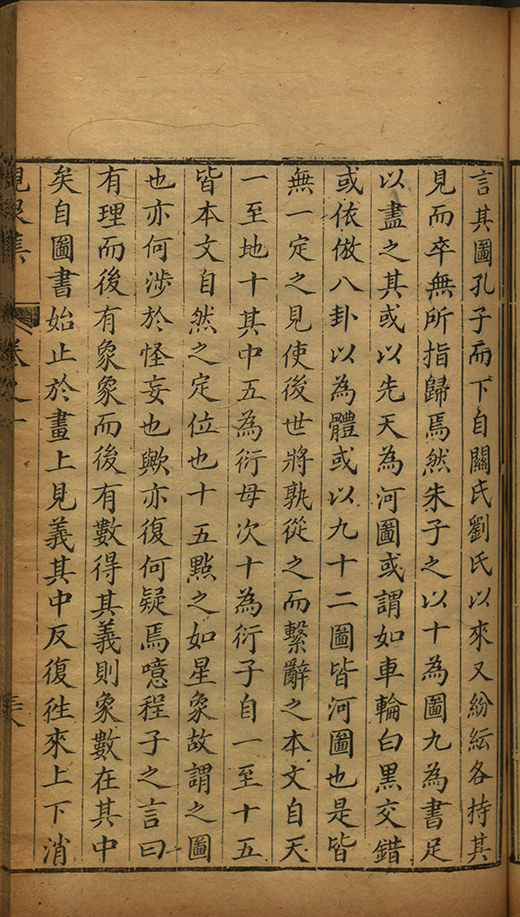 言其圖孔子而下自關氏劉氏以來又紛紜各持其
見而卒無所指歸焉然朱子之以十為圖九為書足
以盡之其或以先天為河圖或謂如車輪白黑交錯
或依倣八卦以為體或以九十二圖皆河圖也是皆
無一定之見使後世將孰從之而繫辭之本文自天
一至地十其中五為衍母次十為衍子自一至十五
皆本文自然之定位也十五點之如星象故謂之圖
也亦何涉於怪妄也歟亦復何疑焉噫程子之言曰
有理而後有象象而後有數得其義則象數在其中
矣自圖書始止於畫上見義其中反復徃來上下消